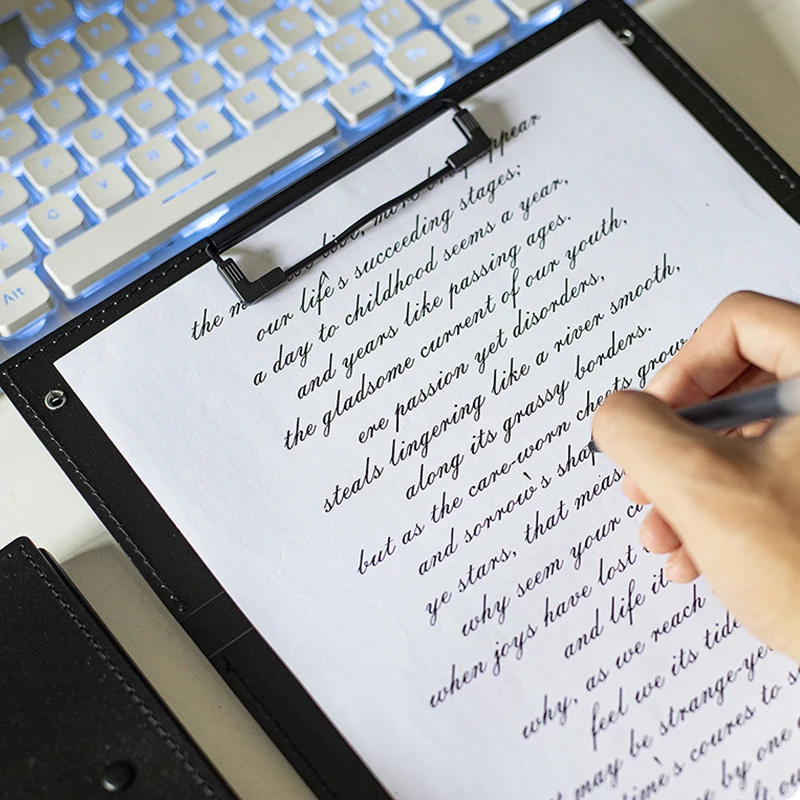 Alt
Alt
the we live, more appear
our life's succeeding stages;
a day to childhood seems a year,
and years like passing ages.
the gladsome current of our youth,
ere passion yet disorders,
steals lingering like a river smooth,
along its grassy borders.
but as the care-worn cheets grow
and sorrow's
ye stars, that
why seem your
when joys have lost
and life
why, as we reach
feel we its tide
may be
time's coures to
by one